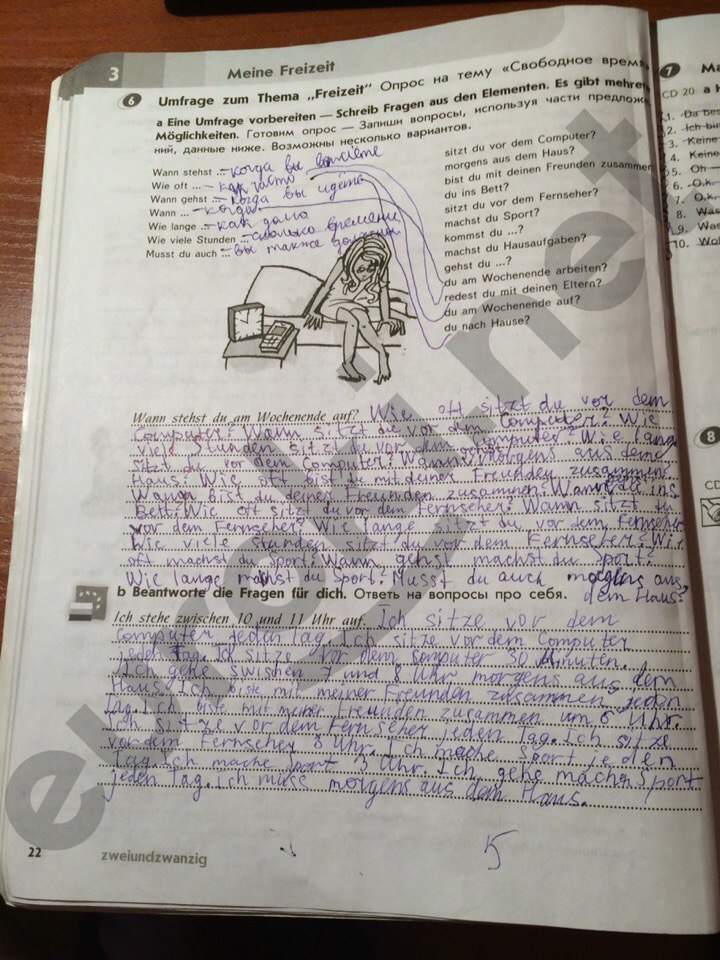 3 Meine Freizeit
6 Umfrage zum Thema „Freizeit“ Опрос на тему «Свободное время»
a Eine Umfrage vorbereiten — Schreib Fragen aus den Elementen. Es gibt mehrere
Möglichkeiten. Готовим опрос — Запиши вопросы, используя части предложе-
ний, данные ниже. Возможны несколько вариантов.
Wann stehst ... - когда вы
Wie oft ... - как часто
Wann gehst ... - когда вы идёте
Wann ... - когда
Wie lange ... - как долго
Wie viele Stunden ... - сколько времени
Musst du auch ... вы также должны
sitzt du vor dem Computer?
morgens aus dem Haus?
bist du mit deinen Freunden zusammen
du ins Bett?
sitzt du vor dem Fernseher?
machst du Sport?
kommst du ...?
machst du Hausaufgaben?
gehst du ...?
du am Wochenende arbeiten?
redest du mit deinen Eltern?
du am Wochenende auf?
du nach Hause?
Wann stehst du am Wochenende auf? Wie oft sitzt du vor dem
Computer? Wann sitzt du vor dem Computer? Wie
viele Stunden sitzt du vor dem Computer? Wie lange
sitzt du vor dem Computer? Wann morgens aus deine
Haus? Wie oft bist du mit deiner Freunden zusammen?
bist du deiner Freunden zusammen? Wann du ins
Bett? Wie oft sitzt du vor dem Fernseher? Wann sitzt du
vor dem Fernseher? Wie lange sitzt du vor dem Fernseher?
Wie viele Stunden sitzt du vor dem Fernseher? Wie
oft machst du Sport? Wann gehst machst du Sport?
Wie lange machst du Sport? Musst du auch morgens aus
dem Haus?
b Beantworte die Fragen für dich. Ответь на вопросы про себя.
Ich stehe zwischen 10 und 11 Uhr auf. Ich sitze vor dem
Computer jeden Tag. Ich sitze vor dem Computer
jeden Tag. Ich sitze vor dem Computer 30 Minuten.
Ich gehe swischen 7 und 8 Uhr morgens aus dem
Haus. Ich biste mit meiner Freunden zusammen jeden
Tag. Ich biste mit meiner Freunden zusammen um 6 Uhr.
Ich sitze vor dem Fernseher jeden Tag. Ich sitze
vor dem Fernseher 3 Uhr. Ich mache Sport jeden
Tag. Ich mache Sport 3 Uhr. Ich gehe mache Sport
jeden Tag. Ich muss morgens aus dem Haus.
5
22 zweiundzwanzig
7 Ma
CD 20 a H
1. Da bes
2. Ich bin
3. Keine
4. Keine
5. Oh —
6. O.k.
7. O.k.
8. Was
9. Was
10. Wo
8
CD
euroki.net